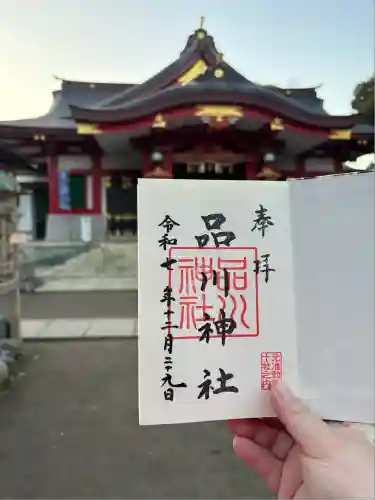 奉拝
品川神社
品川神社
令和七年十二月二十九日